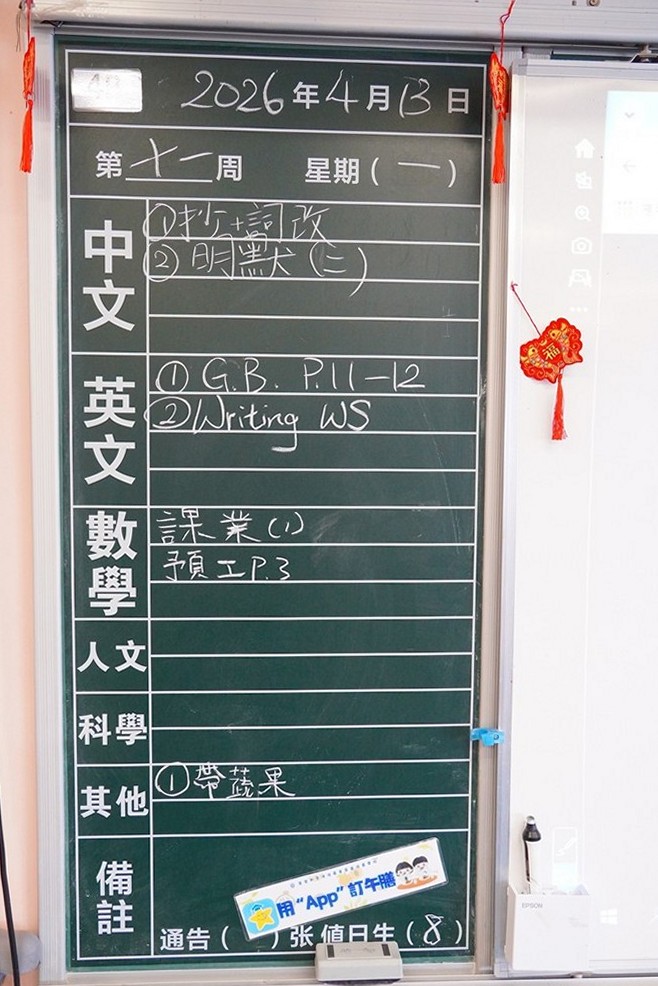 2026年4月13日
第十一周 星期(一)
中文
①抄+詞改
②明默(二)
英文
① G.B. P.11-12
② Writing WS
數學
課業(1)
預工P.3
人文
科學
其他
①帶蔬果
備註
用“App”訂午膳
通告( )张 值日生(8)
EPSON
福